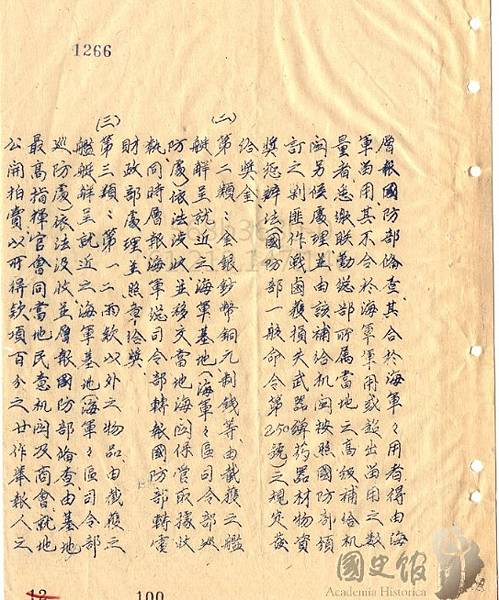 1266
層報國防部備查其合於海軍々用者得由海
軍留用其不合於海軍軍用或超出留用之數
量者悉繳聯勤總部所屬當地之高級補給机
関另候處理並由該補給机関按照國防部頒
訂之剿匪作戰虜獲損失武器彈葯器材物資
獎懲辦法(國防部一般命令第250號)之規定發
給獎金
(二)第二類：金銀鈔幣銅元制錢等由截獲之艦
艇解呈就近之海軍基地(海軍々區司令部巡
防處)依法没收並移交當地海関保管取據收
執同時層報海軍總司令部轉報國防部轉電
財政部處理並照章給獎
(三)第三類：第一二兩款以外之物品由截獲之
艦艇解呈就近之海軍基地(海軍々區司令部
巡防處)依法没收並層報國防部備查由基地
最高指揮官會同當地民意机関及商會就地
公開拍賣以所得款項百分之廿作舉報人之
國史館
Academia Historica
12
100